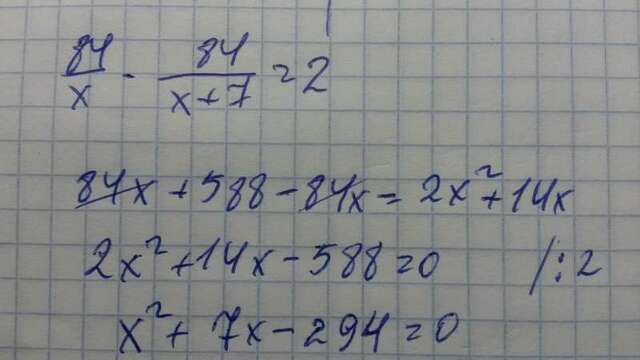 84/x - 84/(x+7) = 2
84x + 588 - 84x = 2x² + 14x
2x² + 14x - 588 = 0 /:2
x² + 7x - 294 = 0